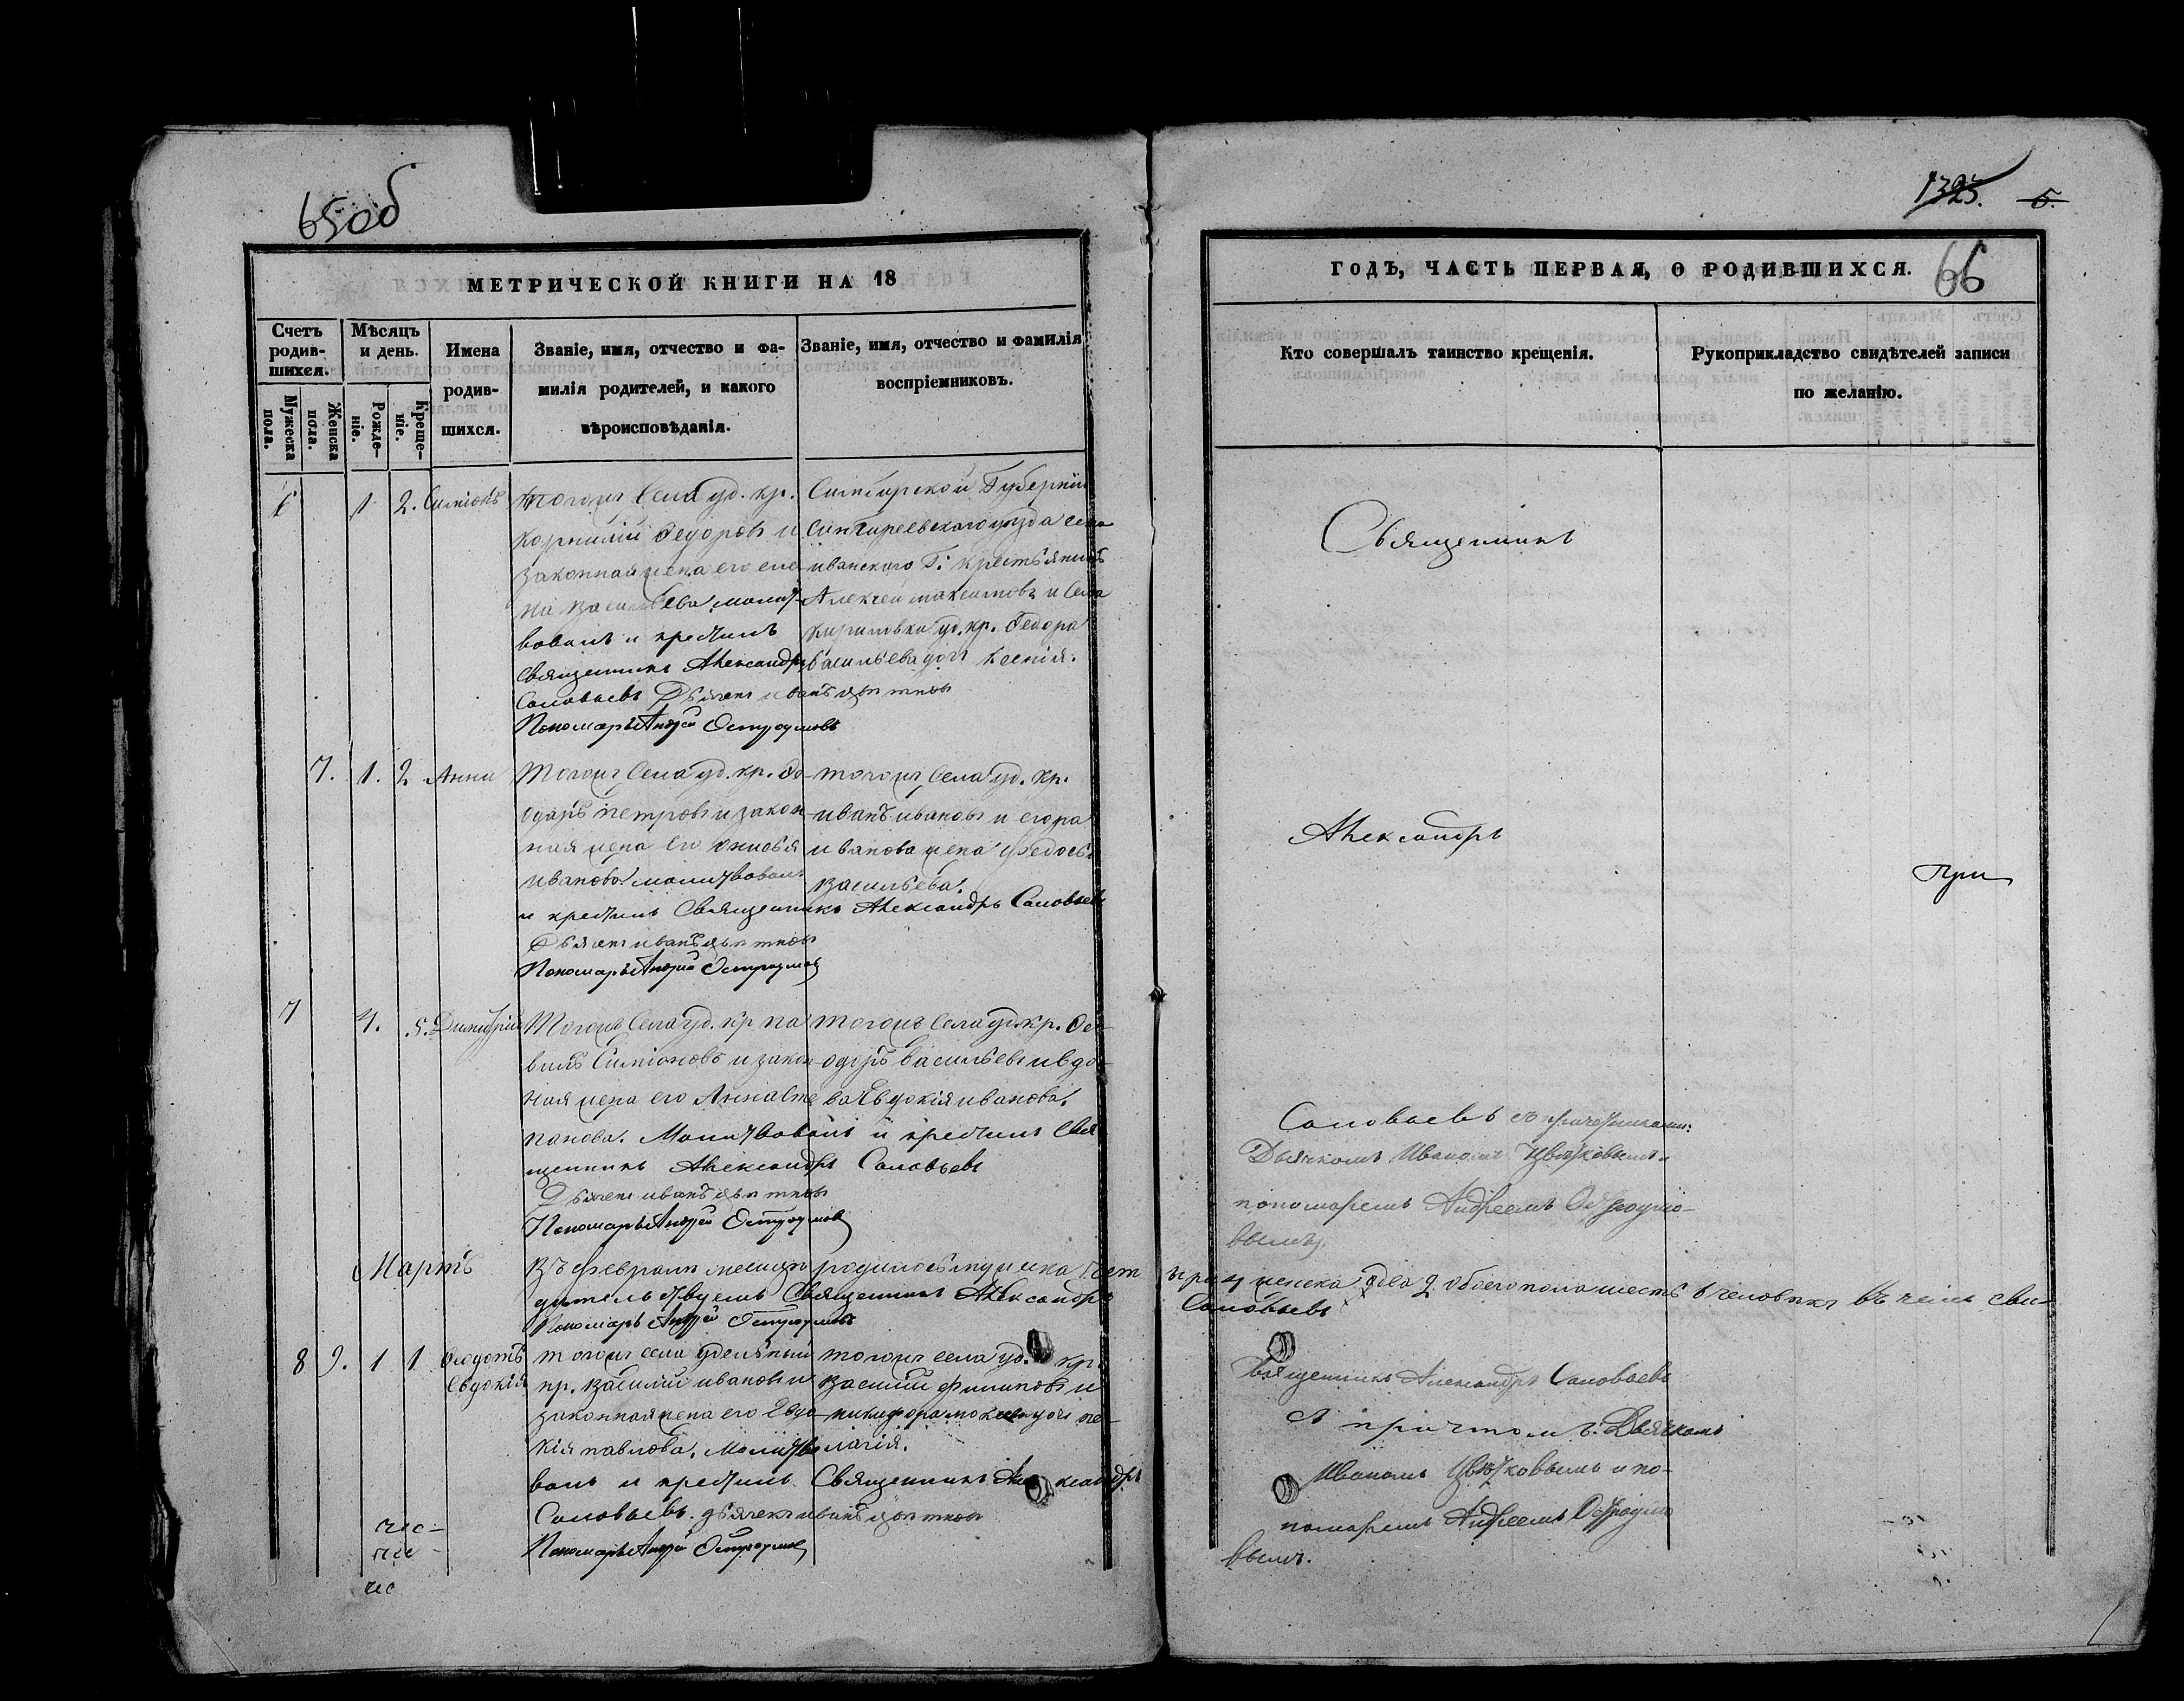 65об
МЕТРИЧЕСКОЙ КНИГИ НА 18
Счетъ родив-шихся.
Мѣсяцъ и день.
Имена родив-шихся.
Званіе, имя, отчество и фа-
милія родителей, и какого
вѣроисповѣданія.
Званіе, имя, отчество и фамилія
воспріемниковъ.
Мужеска пола.
Женска пола.
Рожде-ніе.
Креще-ніе.
1 2. Симіонъ
тогожъ села уд. кр.
Корнилий Федоровъ и
законная жена его еле
на Васильева, молит
вовалъ и крестилъ
Священникъ Александръ
Соловьевъ Дьячекъ иванъ цветковъ
Пономарь Андрей Остроумовъ
Симбирской Губерніи
Сенгилеевского уезда села
иванского Г: крестьянинъ
Алексей максимовъ и села
кириловка уд. кр. Федора
васильева дочь Ксенія.
7. 1. 2 Анна
Тогожъ села уд. кр. Фе
одоръ петровъ и закон
ная жена его
иванова. молитвовалъ
и крестилъ Священникъ Александръ Соловьевъ
Дьячекъ иванъ цветковъ
Пономарь Андрей Остроумовъ
тогожъ села уд. кр.
иванъ ивановъ и егора
иванова жена федосья
васильева.
7 4. 5. Димитрий
Тогожъ села уд. кр па
велъ Симіоновъ и закон
ная жена его Анна сте
панова. Молитвовалъ и крестилъ Свя
щенникъ Александръ Соловьевъ
Дьячекъ иванъ цветковъ
Пономарь Андрей Остроумовъ
тогожъ села уд. кр. Фе
одоръ васильевъ и вдо
ва Евдокія иванова.
Мартъ
Въ феврали месяце родилось мужеска четыри 4 женска два 2 обоего пола шесть 6 человекъ въ чемъ сви-
дительствуемъ Священникъ Александръ Соловьевъ
Пономарь Андрей Остроумовъ
8 9. 1 1 Феодотъ Евдокія
тогожъ села удельный
кр. Василий ивановъ и
законная жена его Евдо
кія павлова. Молитво
валъ и крестилъ Священникъ Александръ
Соловьевъ. дьячекъ иванъ цветковъ
Пономарь Андрей Остроумовъ
тогожъ села уд. кр.
Василий филиповъ и
лагія.
1325. 5.
ГОДЪ, ЧАСТЬ ПЕРВАЯ, О РОДИВШИХСЯ.
66
Кто совершалъ таинство крещенія.
Рукоприкладство свидѣтелей записи
по желанію.
Священникъ
Александръ
При
Соловьевъ съ причетниками:
Дьячкомъ Иваномъ Цвѣтковымъ
пономаремъ Андреемъ Остроумо-
вымъ.
Священникъ Александръ Соловьевъ
съ причтомъ: Дьячкомъ
Иваномъ Цвѣтковымъ и по-
номаремъ Андреемъ Остроумо
вымъ.